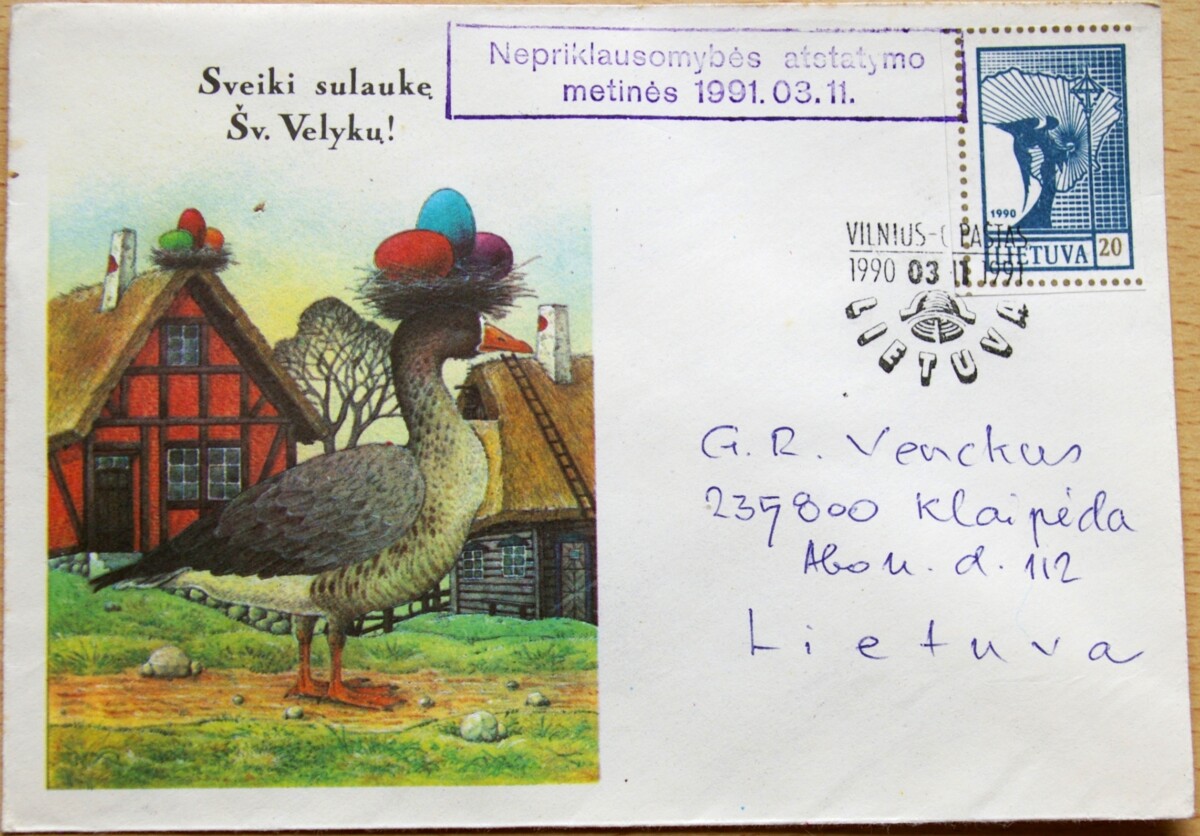 Sveiki sulaukę
Šv. Velykų!
Nepriklausomybės atstatymo
metinės 1991.03.11.
1990
LIETUVA 20
VILNIUS-C PAŠTAS
1990 03 11 1991
LIETUVA
G. R. Venckus
235800 Klaipėda
Abon. d. 112
Lietuva